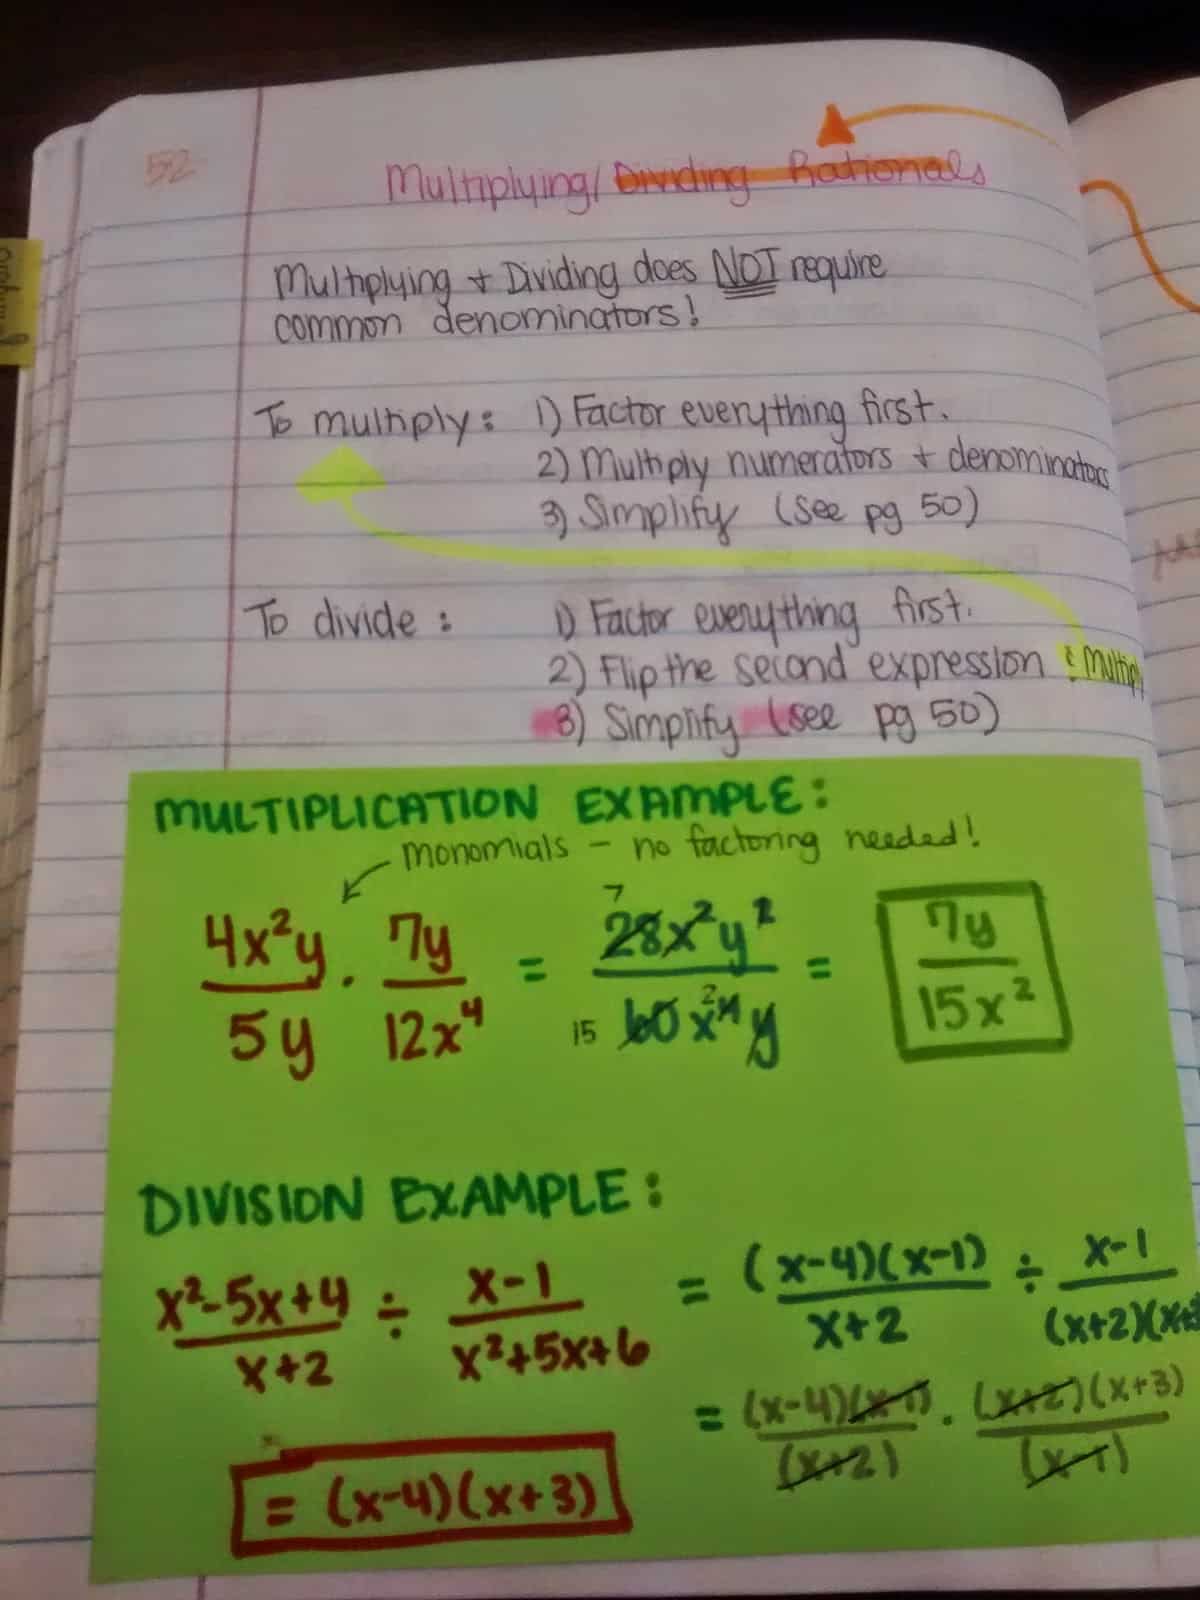 52
Multiplying/Dividing Rationals
Multiplying + Dividing does NOT require
common denominators!
To multiply: 1) Factor everything first.
2) Multiply numerators + denominators
3) Simplify (see pg 50)
To divide: 1) Factor everything first.
2) Flip the second expression & Multiply
3) Simplify (see pg 50)
MULTIPLICATION EXAMPLE:
monomials - no factoring needed!
4x²y/5y · 7y/12x⁴ = 7 28x²y²/15 60x²⁴y = 7y/15x²
DIVISION EXAMPLE:
x²-5x+4/x+2 ÷ x-1/x²+5x+6 = (x-4)(x-1)/x+2 ÷ x-1/(x+2)(x+3
= (x-4)(x-1)/(x+2) · (x+2)(x+3)/(x-1)
= (x-4)(x+3)